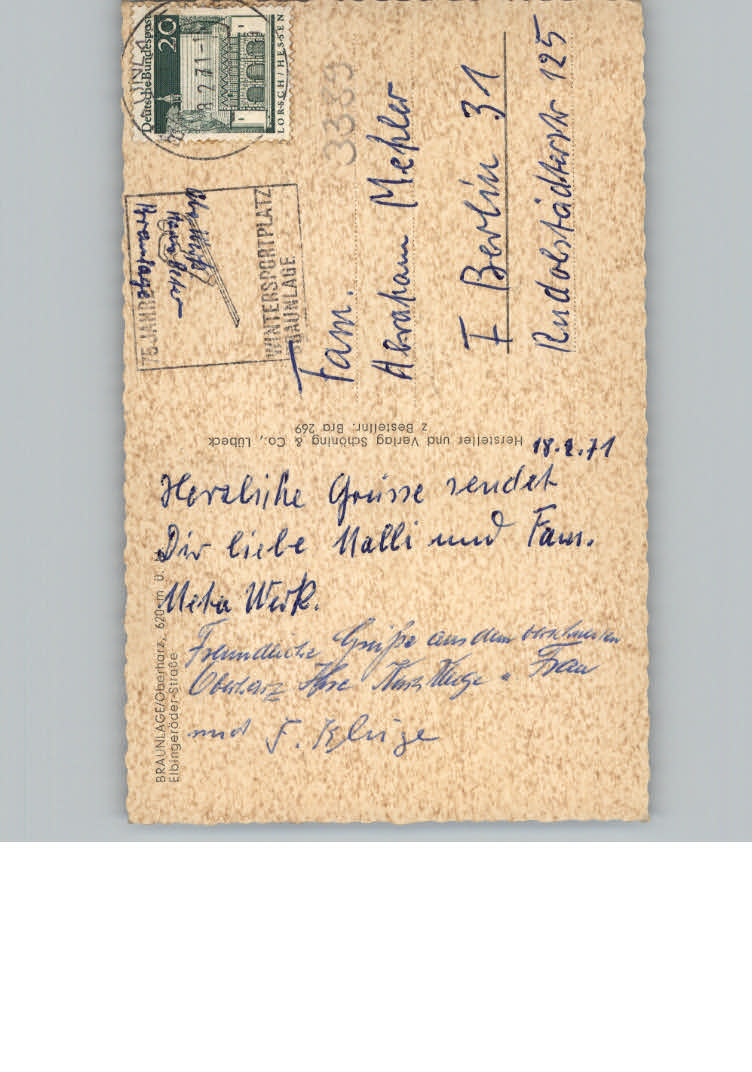 18.2.71
Herzliche Grüsse sendet
Dir liebe Malli und Fam.
Meta
Freundliche Grüße aus dem
Oberharz Frau
und F. Kluge
BRAUNLAGE/Oberharz, 620 m ü.
Elbingeröder-Straße
Hersteller und Verlag Schöning & Co., Lübeck
z Bestellnr. Bra 269
Deutsche Bundespost
20
LORSCH/HESSEN
2.71-1
75 JAHRE
WINTERSPORTPLATZ
BRAUNLAGE
Braunlage
3389
Fam.
Abraham Mehler
1 Berlin 31
Rudolstädterstr 125